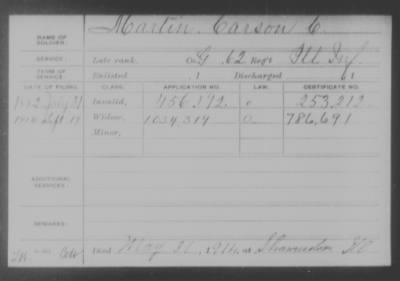 NAME OF SOLDIER: Martin, Carson C.
SERVICE: Late rank, Co. G, 62 Reg't Ill Inf.
TERM OF SERVICE: Enlisted , 1 Discharged , 1
DATE OF FILING. CLASS. APPLICATION NO. LAW. CERTIFICATE NO.
July 21 Invalid, 456.192 253.212
1914 Sept 17 Widow, 1034,319 786,691
Minor,
ADDITIONAL SERVICES:
REMARKS:
Died May 31, 1914, at